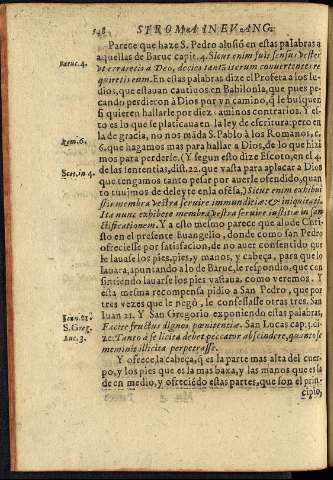 548 STROMA IN EVANG.
Parece que haze S. Pedro alusió en estas palabras a
aquellas de Baruc capit. 4. Sicut enim fuit sensus vester
Baruc. 4.
vt erraretis a Deo, decies tantū iterum conuertentes re
quiretis eum. En estas palabras dize el Profeta a los Iu-
dios, que estauan cautiuos en Babilonia, que pues pe-
cando perdieron à Dios por vn camino, q̃ le busquen
si quieren hallarle por diez caminos contrarios. Y es-
to es lo que se platicaua en la ley de escritura: pero en
la de gracia, no nos máda S. Pablo à los Romanos, c.
Rom. 6.
6. que hagamos mas para hallar a Dios, de lo que hizi
mos para perderle. (Y segun esto dize Escoto, en el 4.
Scot. in 4.
de las sentencias, dist. 22. que vasta para aplacar a Dios
que tengamos tanto pesar por auerle ofendido, quan
to tuuimos de deleyte en la ofésa,) Sicut enim exhibui
stis membra vestra seruire immunditiæ & iniquitati,
Ita nunc exhibete membra vestra seruire iustitiæ in san
ctificationem. Y a esto mesmo parece que alude Chri-
sto en el presente Euangelio, donde como san Pedro
ofreciesse por satisfacion, de no auer consentido que
le lauasse los pies, pies, y manos, y cabeça, para que lo
lauara, apuntando a lo de Baruc, le respondio, que con
sintiendo lauarse los pies vastaua, como veremos. Y
esta mesma recompensa pidio a San Pedro, que por
tres vezes que le negò, le confessasse otras tres. San
Ioan. 21.
Iuan 21. Y San Gregorio exponiendo estas palabras,
S. Greg.
Facite fructus dignos pœnitentiæ. San Lucas cap. 3. di-
Luc. 3.
ze: Tanto à se licita debet peccator abscindere, quanto se
meminit illicita perpetrasse.
Y ofrece, la cabeça, q̃ es la parte mas alta del cuer-
po, y los pies que es la mas baxa, y las manos que es la
de en medio, y ofreciédo estas partes, que son el prin-
cipio,